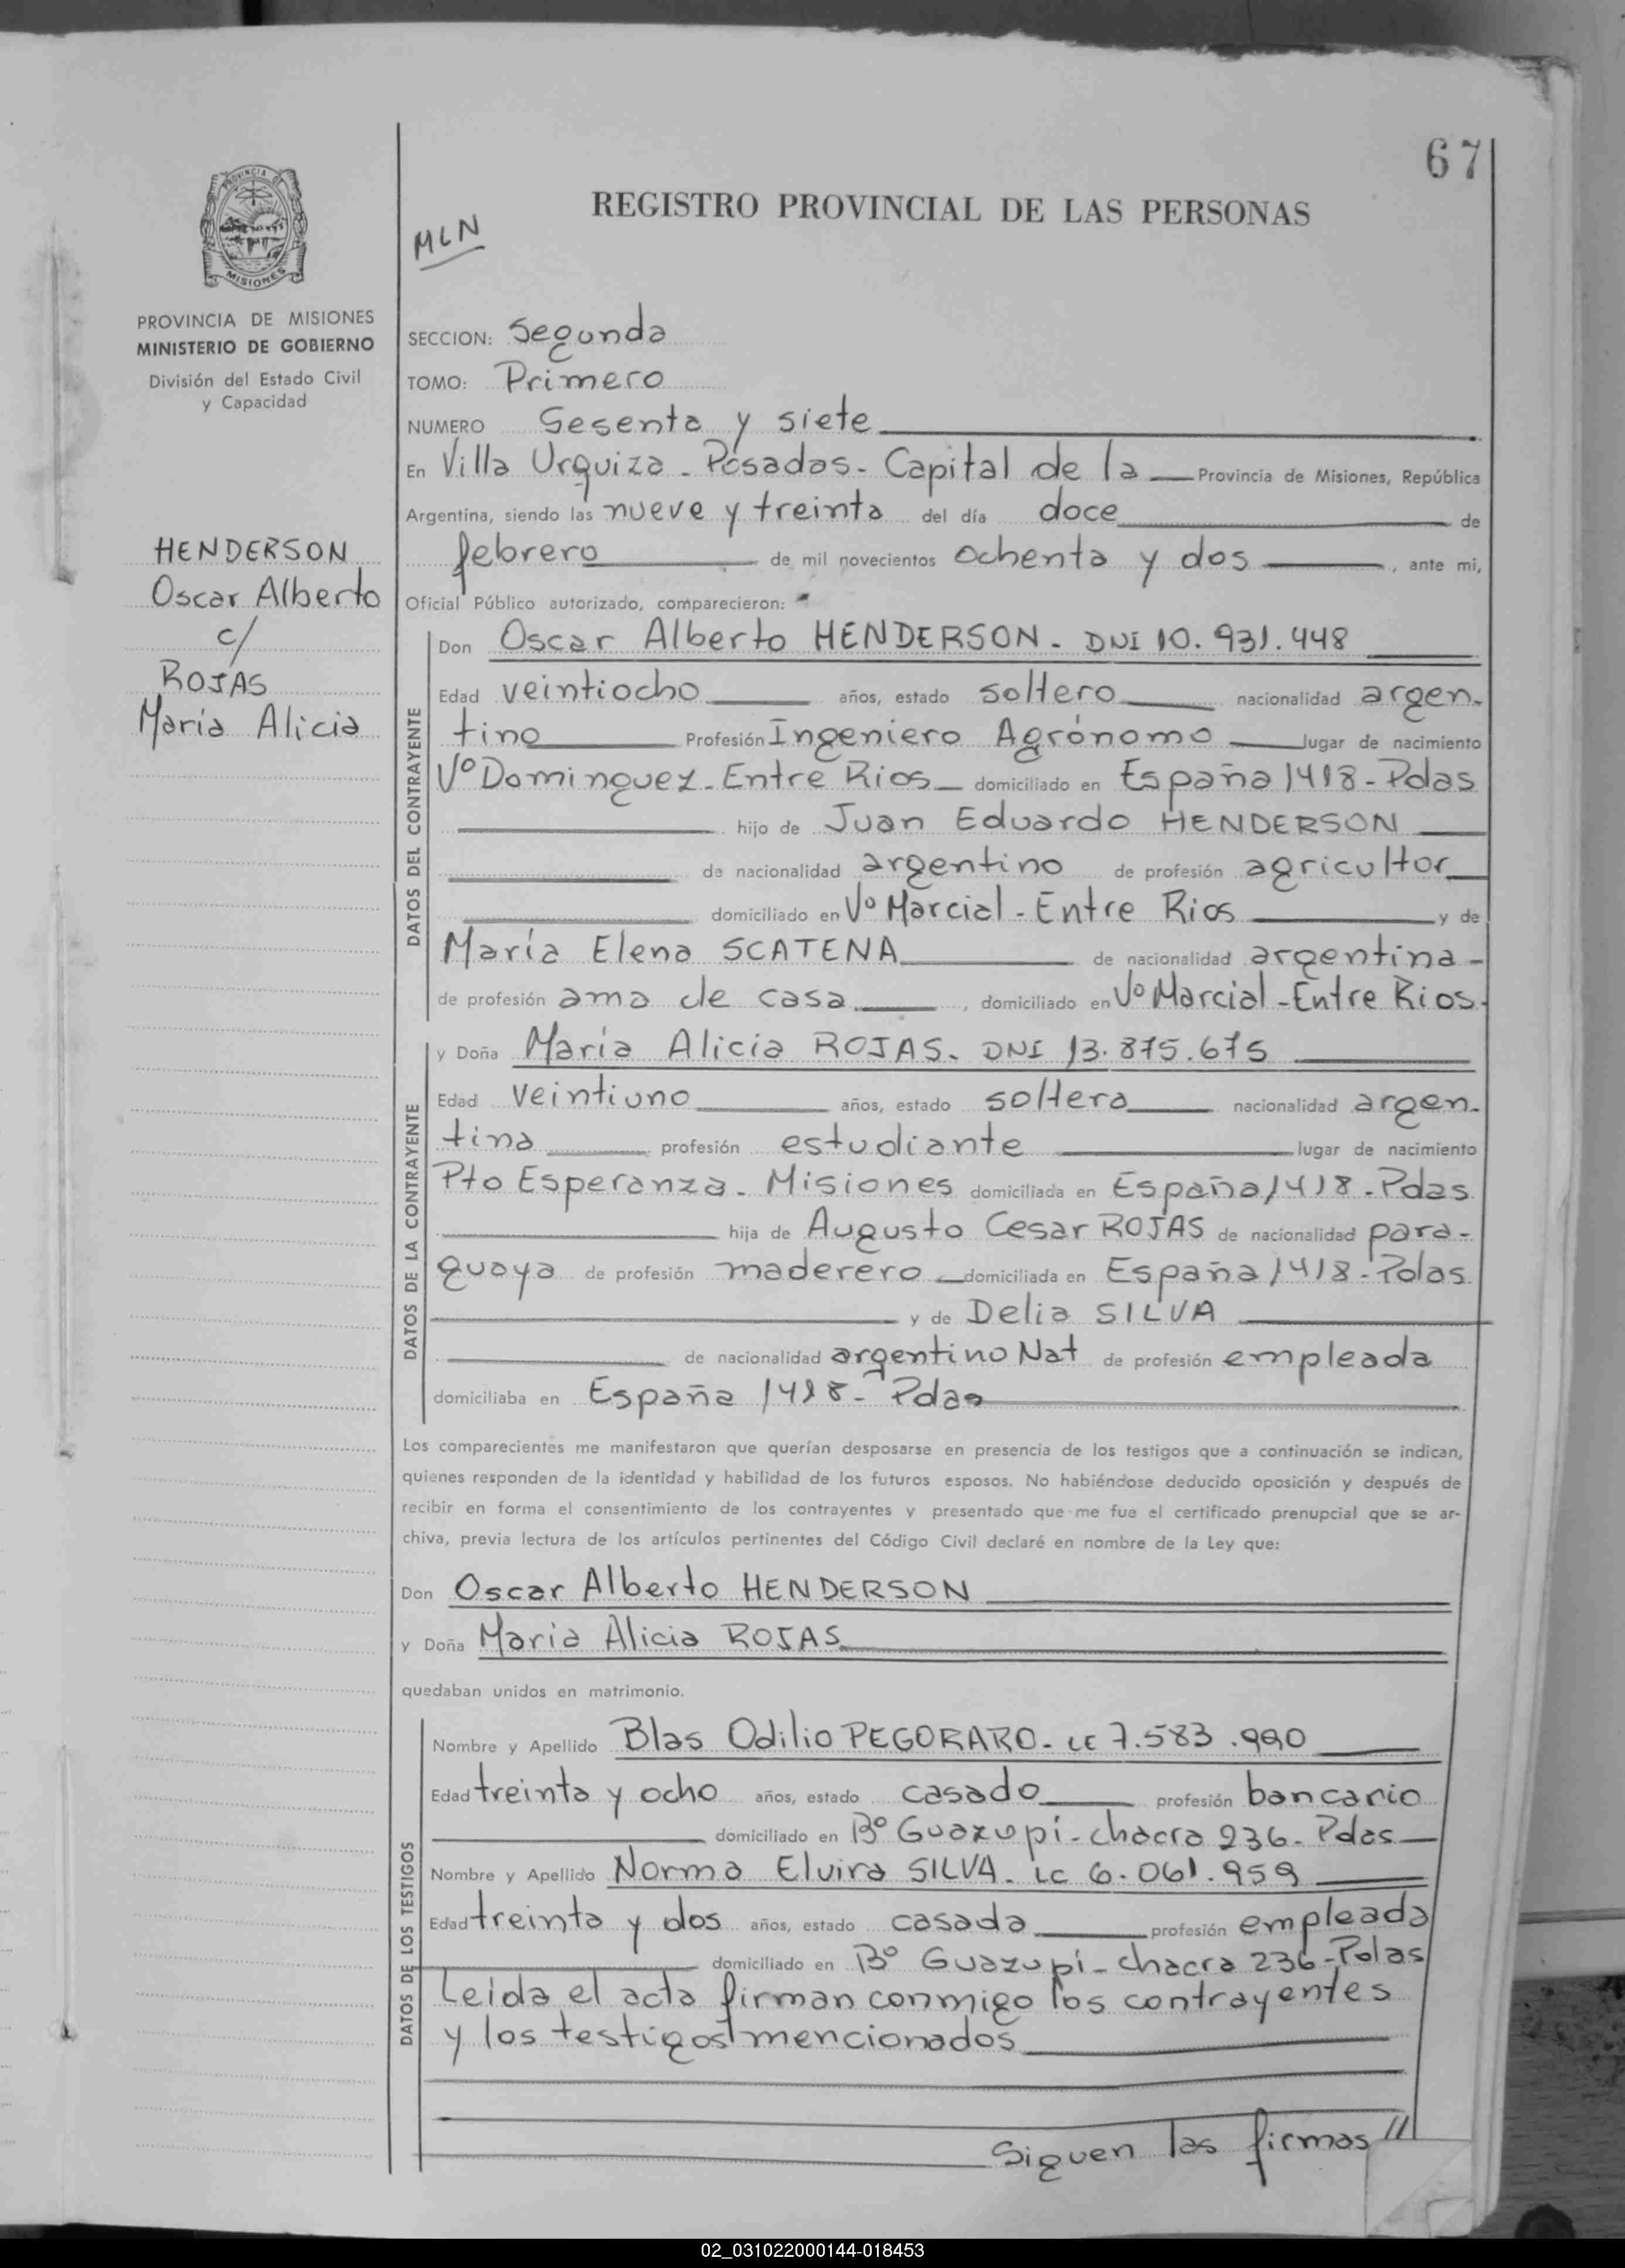 67
REGISTRO PROVINCIAL DE LAS PERSONAS
MLN
PROVINCIA DE
MISIONES
PROVINCIA DE MISIONES
MINISTERIO DE GOBIERNO
División del Estado Civil
y Capacidad
HENDERSON
Oscar Alberto
c/
ROJAS
María Alicia
SECCION: Segunda
TOMO: Primero
NUMERO Sesenta y siete
En Villa Urquiza - Posadas - Capital de la Provincia de Misiones, República
Argentina, siendo las nueve y treinta del día doce de
febrero de mil novecientos ochenta y dos, ante mi,
Oficial Público autorizado, comparecieron:
DATOS DEL CONTRAYENTE
Don Oscar Alberto HENDERSON - DNI 10.931.448
Edad veintiocho años, estado soltero nacionalidad argen-
tino Profesión Ingeniero Agrónomo lugar de nacimiento
Vº Dominguez - Entre Rios domiciliado en España 1418 - Pdas
hijo de Juan Eduardo HENDERSON
de nacionalidad argentino de profesión agricultor
domiciliado en Vº Marcial - Entre Rios y de
María Elena SCATENA de nacionalidad argentina -
de profesión ama de casa, domiciliado en Vº Marcial - Entre Rios.
DATOS DE LA CONTRAYENTE
y Doña María Alicia ROJAS - DNI 13.875.675
Edad veintiuno años, estado soltera nacionalidad argen-
tina profesión estudiante lugar de nacimiento
Pto Esperanza - Misiones domiciliada en España 1418 - Pdas
hija de Augusto Cesar ROJAS de nacionalidad para-
guaya de profesión maderero domiciliada en España 1418 - Pdas.
y de Delia SILVA
de nacionalidad argentino Nat de profesión empleada
domiciliaba en España 1418 - Pdas
Los comparecientes me manifestaron que querían desposarse en presencia de los testigos que a continuación se indican,
quienes responden de la identidad y habilidad de los futuros esposos. No habiéndose deducido oposición y después de
recibir en forma el consentimiento de los contrayentes y presentado que me fue el certificado prenupcial que se ar-
chiva, previa lectura de los artículos pertinentes del Código Civil declaré en nombre de la Ley que:
Don Oscar Alberto HENDERSON
y Doña María Alicia ROJAS
quedaban unidos en matrimonio.
DATOS DE LOS TESTIGOS
Nombre y Apellido Blas Odilio PEGORARO - LE 7.583.990
Edad treinta y ocho años, estado casado profesión bancario
domiciliado en Bº Guazupi - chacra 236 - Pdas
Nombre y Apellido Norma Elvira SILVA - LC 6.061.959
Edad treinta y dos años, estado casada profesión empleada
domiciliado en Bº Guazupi - chacra 236 - Pdas
Leida el acta firman conmigo los contrayentes
y los testigos mencionados
Siguen las firmas //
02_031022000144-018453